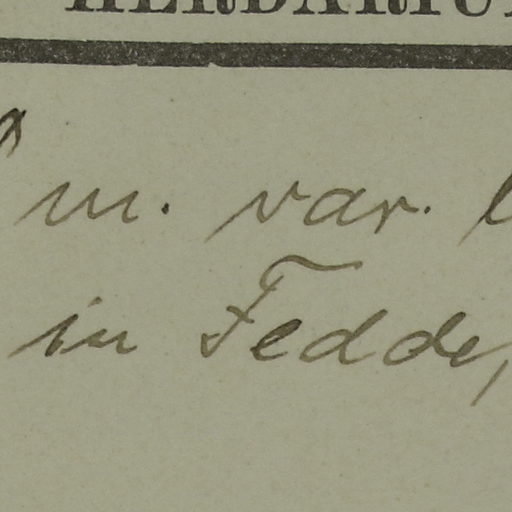 HERBARIU
m. var.
in Fedde,